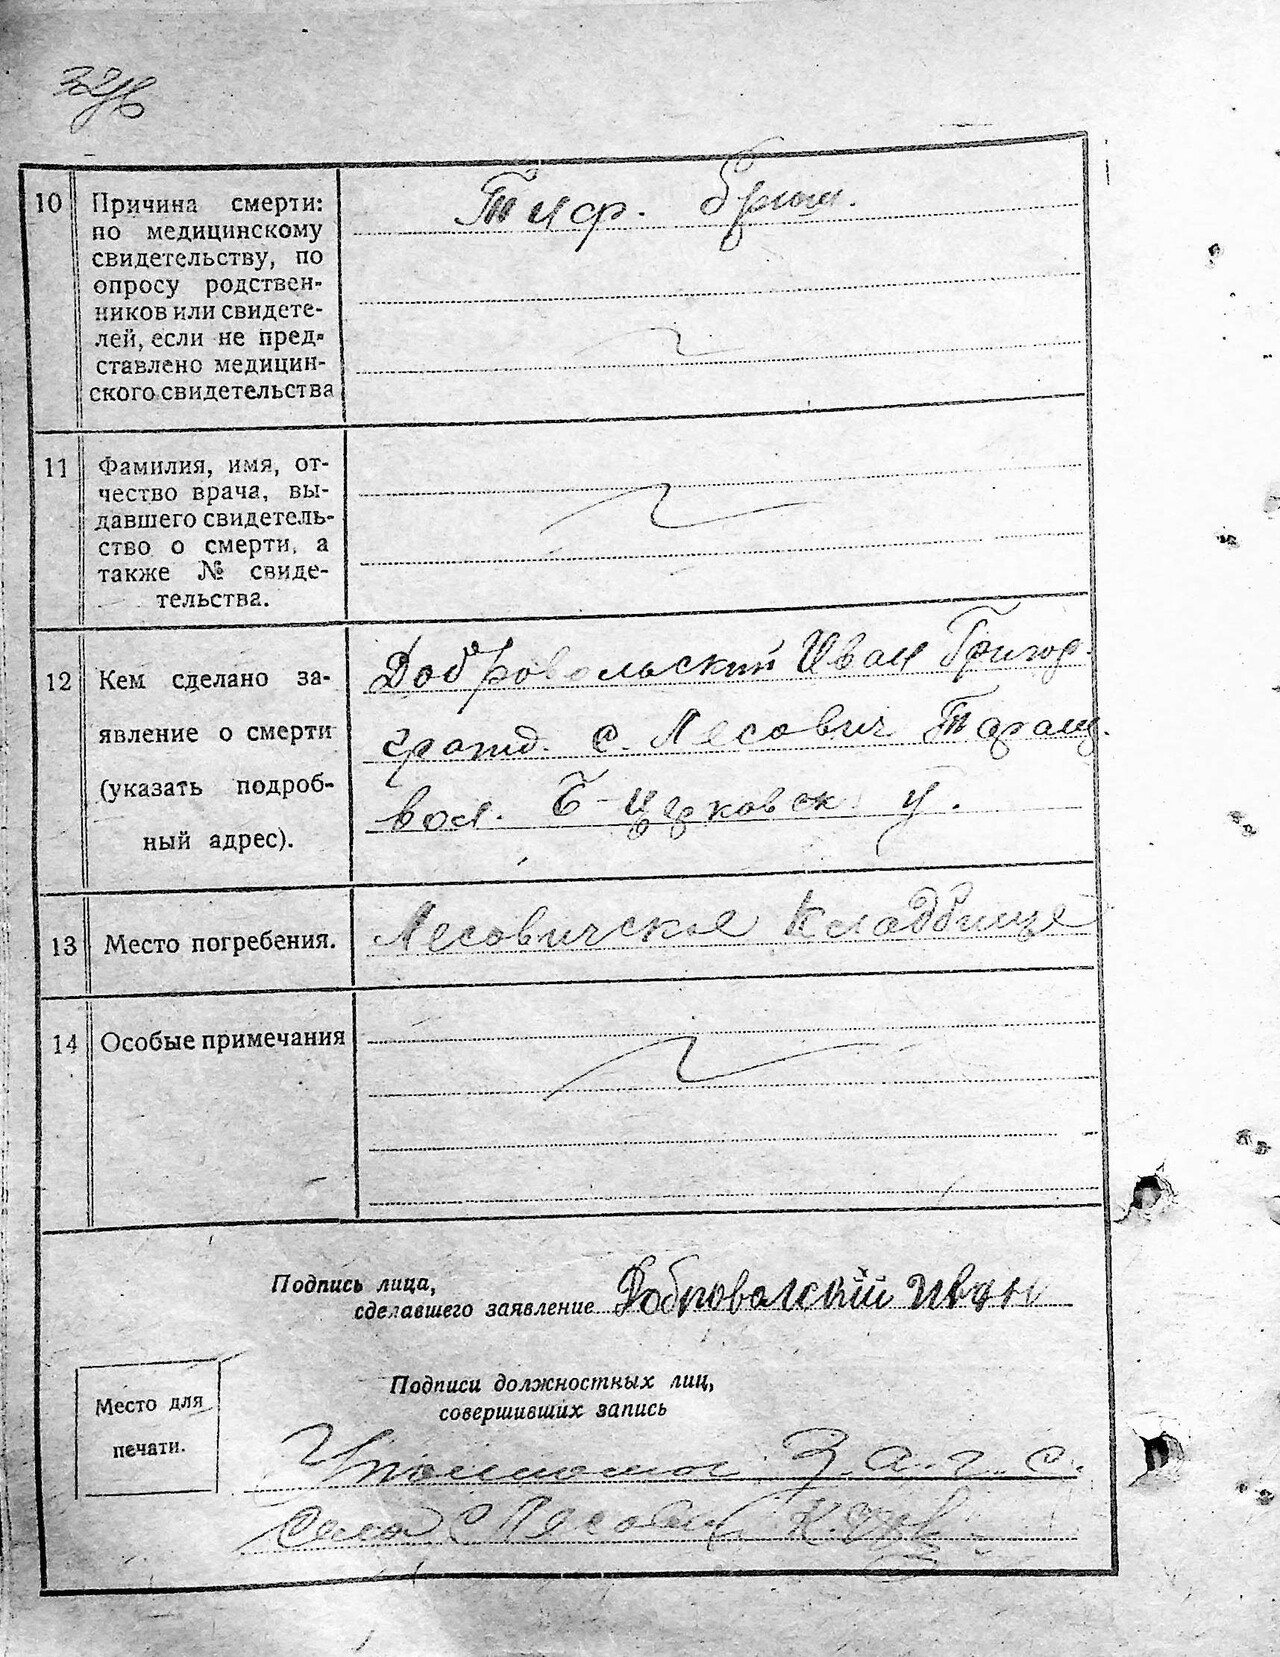 10 Причина смерти:
по медицинскому
свидетельству, по
опросу родствен-
ников или свидете-
лей, если не пред-
ставлено медицин-
ского свидетельства
Тиф. брюш.
11 Фамилия, имя, от-
чество врача, вы-
давшего свидетель-
ство о смерти, а
также № свиде-
тельства.
12 Кем сделано за-
явление о смерти
(указать подроб-
ный адрес).
Добровольский Иван Григор.
гражд. с. Лесович Таращ.
вол. Б-церковск у.
13 Место погребения.
Лесовичское Кладбище
14 Особые примечания
Подпись лица,
сделавшего заявление Добровалский Иван
Место для
печати.
Подписи должностных лиц,
совершивших запись
З.а.г.с.
села Лесович